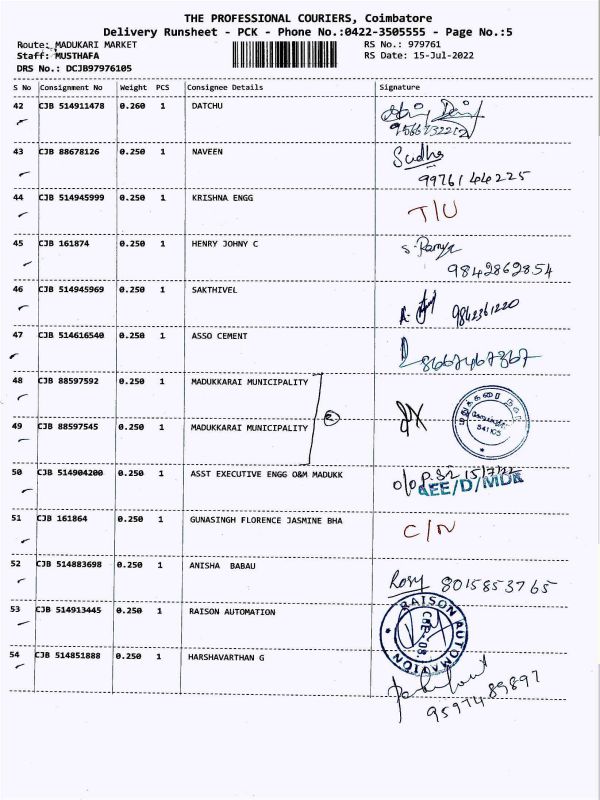 THE PROFESSIONAL COURIERS, Coimbatore
Delivery Runsheet - PCK - Phone No.:0422-3505555 - Page No.:5
Route: MADUKARI MARKET RS No.: 979761
Staff: MUSTHAFA RS Date: 15-Jul-2022
DRS No.: DCJB97976105
S No Consignment No Weight PCS Consignee Details Signature
42 CJB 514911478 0.260 1 DATCHU
43 CJB 88678126 0.250 1 NAVEEN Sudha
9976144225
44 CJB 514945999 0.250 1 KRISHNA ENGG T/U
45 CJB 161874 0.250 1 HENRY JOHNY C S. Ramya
9842862854
46 CJB 514945969 0.250 1 SAKTHIVEL 9842361220
47 CJB 514616540 0.250 1 ASSO CEMENT 8667467367
48 CJB 88597592 0.250 1 MADUKKARAI MUNICIPALITY
2
49 CJB 88597545 0.250 1 MADUKKARAI MUNICIPALITY 641105
50 CJB 514904200 0.250 1 ASST EXECUTIVE ENGG O&M MADUKK
AEE/D/MDK
51 CJB 161864 0.250 1 GUNASINGH FLORENCE JASMINE BHA C/N
52 CJB 514883698 0.250 1 ANISHA BABAU Rosy 8015853765
53 CJB 514913445 0.250 1 RAISON AUTOMATION RAISON AUTOMATION
54 CJB 514851888 0.250 1 HARSHAVARTHAN G
9597489897